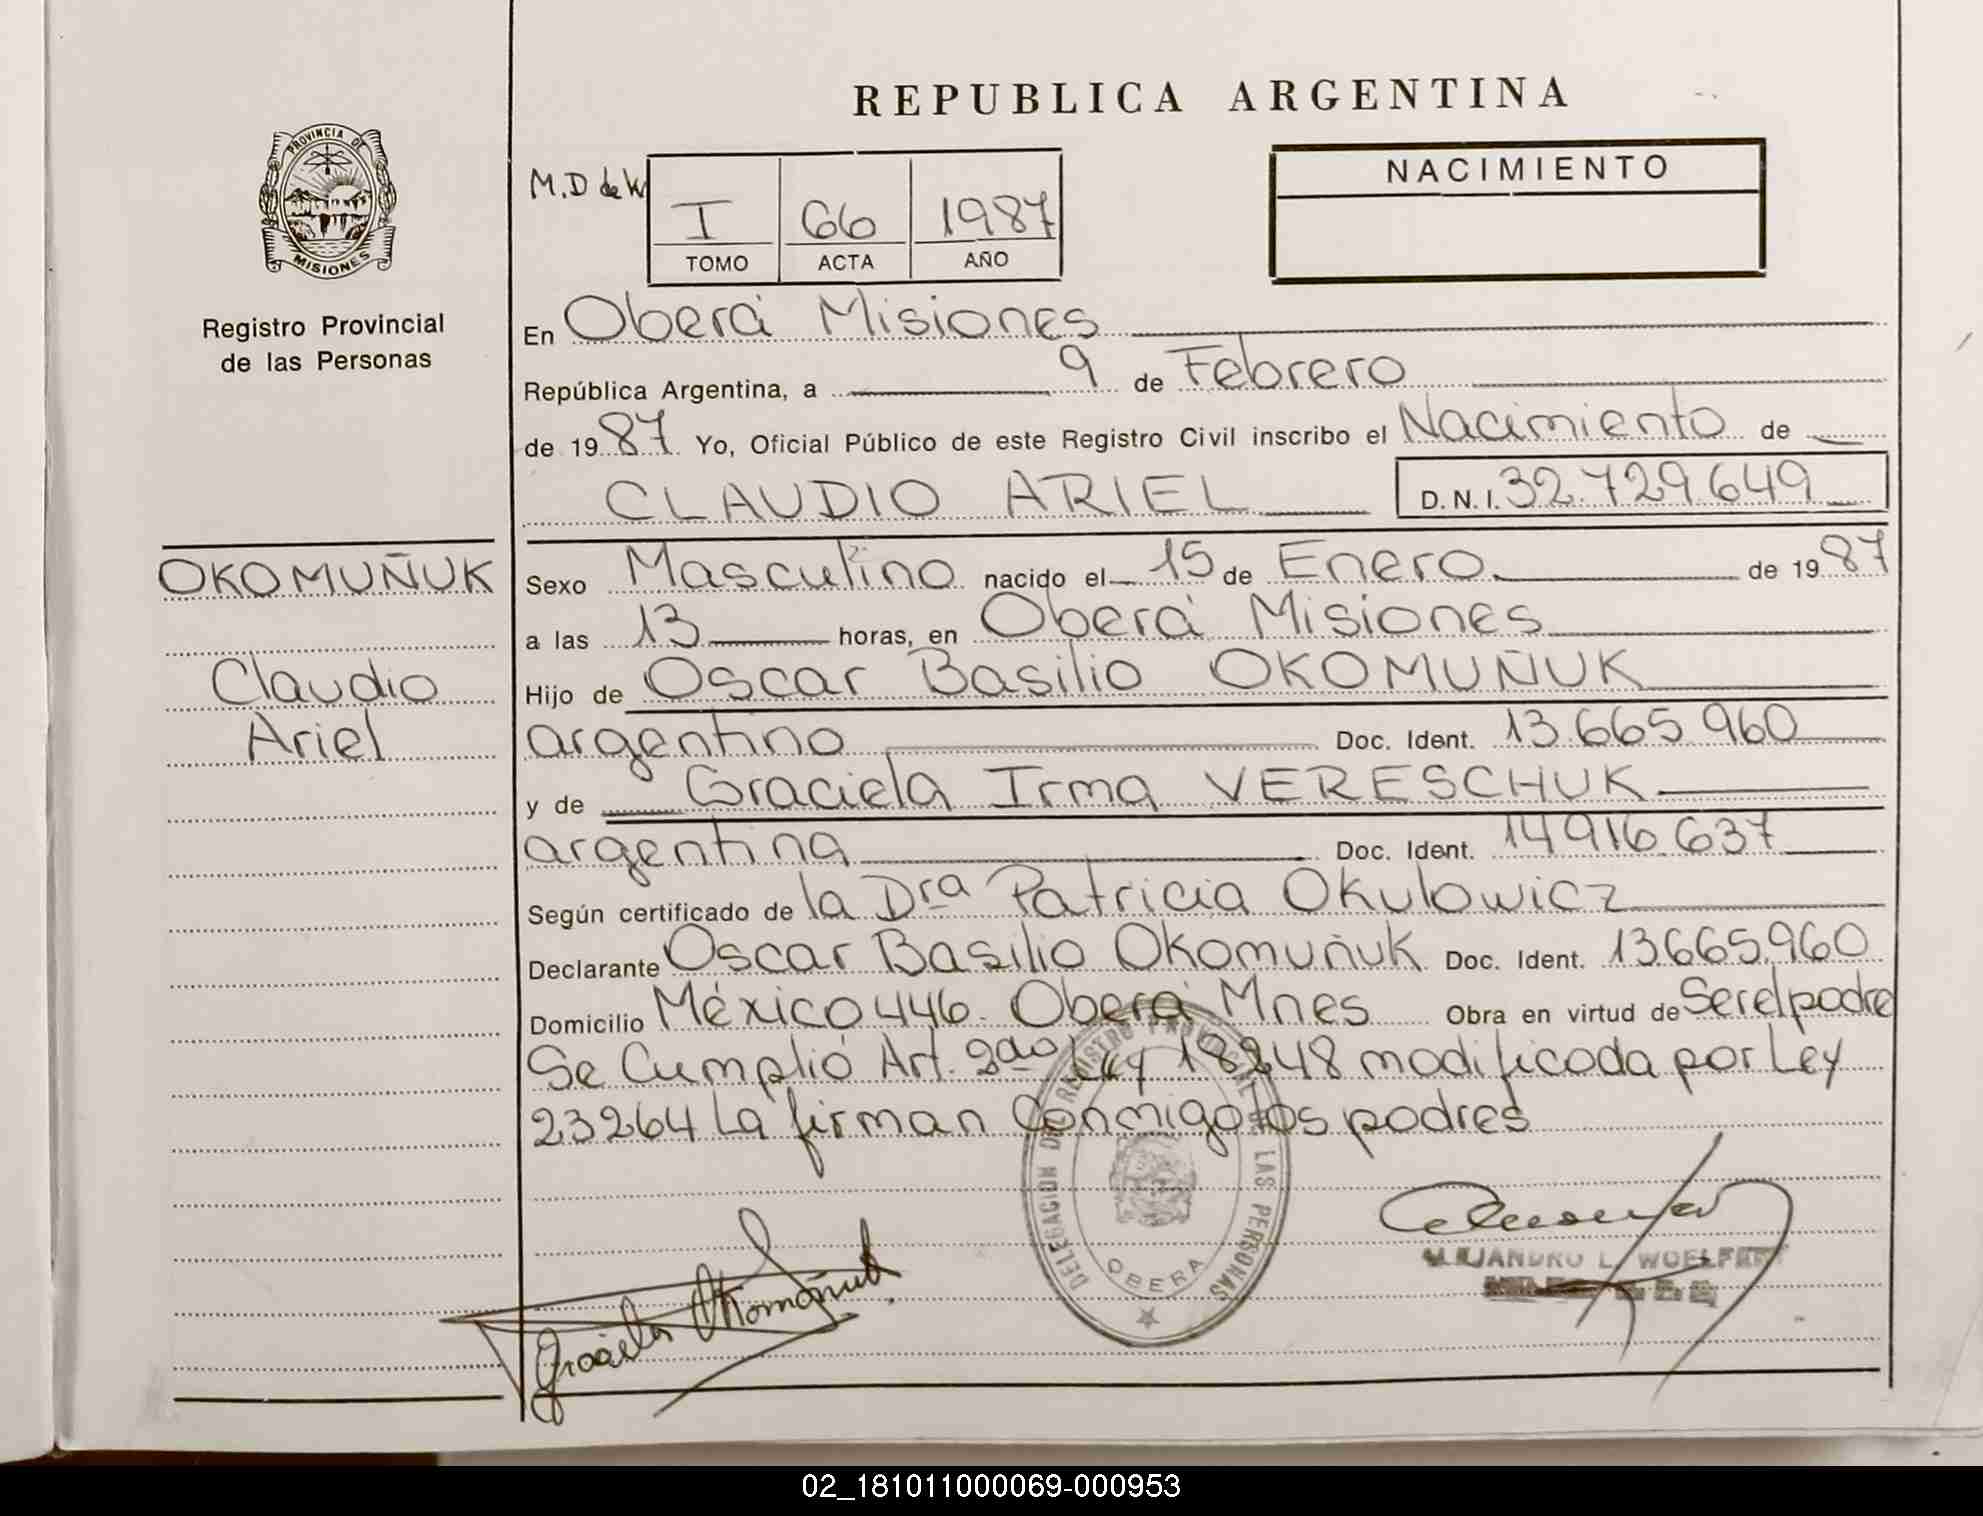 REPUBLICA ARGENTINA
PROVINCIA DE
MISIONES
Registro Provincial
de las Personas
M.D de W
I 66 1987
TOMO ACTA AÑO
NACIMIENTO
En Oberá Misiones
República Argentina, a 9 de Febrero
de 1987 Yo, Oficial Público de este Registro Civil inscribo el Nacimiento de
CLAUDIO ARIEL D.N.I. 32.729.649
OKOMUÑUK
Claudio
Ariel
Sexo Masculino nacido el 15 de Enero de 1987
a las 13 horas, en Oberá Misiones
Hijo de Oscar Basilio OKOMUÑUK
argentino Doc. Ident. 13.665.960
y de Graciela Irma VERESCHUK
argentina Doc. Ident. 14.916.637
Según certificado de la Dra Patricia Okulowicz
Declarante Oscar Basilio Okomuñuk Doc. Ident. 13.665.960
Domicilio México 446. Oberá Mnes Obra en virtud de Ser el padre
Se Cumplió Art. 2do Ley 18248 modificada por Ley
23264 La firman Conmigo los padres
DELEGACION DEL REGISTRO PROVINCIAL DE LAS PERSONAS
OBERA
Graciela Okomuñuk
ALEJANDRO L. WOELFERT
02_181011000069-000953